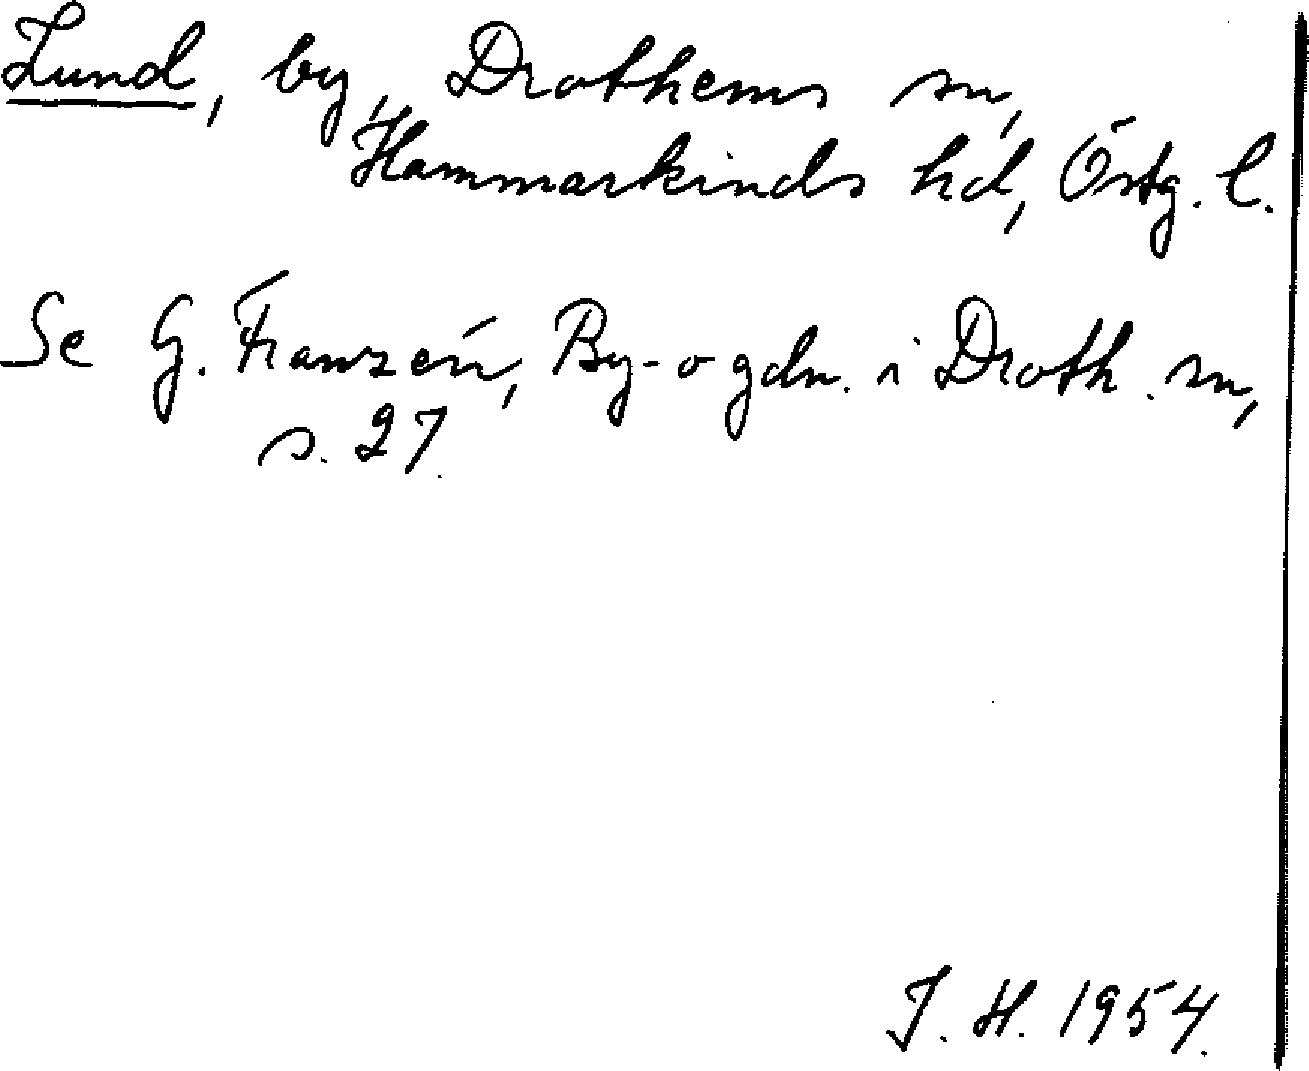 Lund, by, Drothems sn,
Hammarkinds hd, Östg. l.
Se G. Franzén, By- o gdn. i Droth. sn,
s. 27.
J. H. 1954.